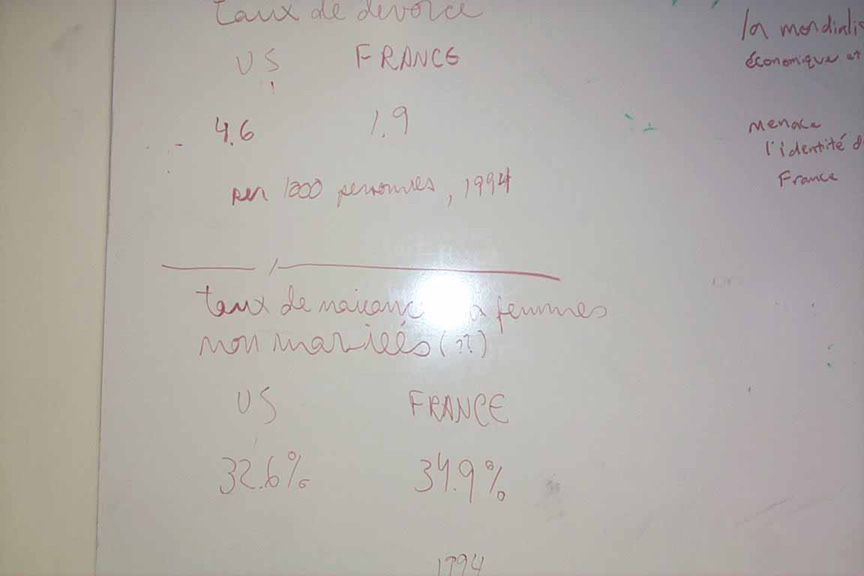 taux de divorce
US FRANCE
4.6 1.9
per 1000 personnes, 1994
taux de a femmes
non mariées (??)
US FRANCE
32.6% 34.9%
1994
la
économique et
menace
l'identité d
France